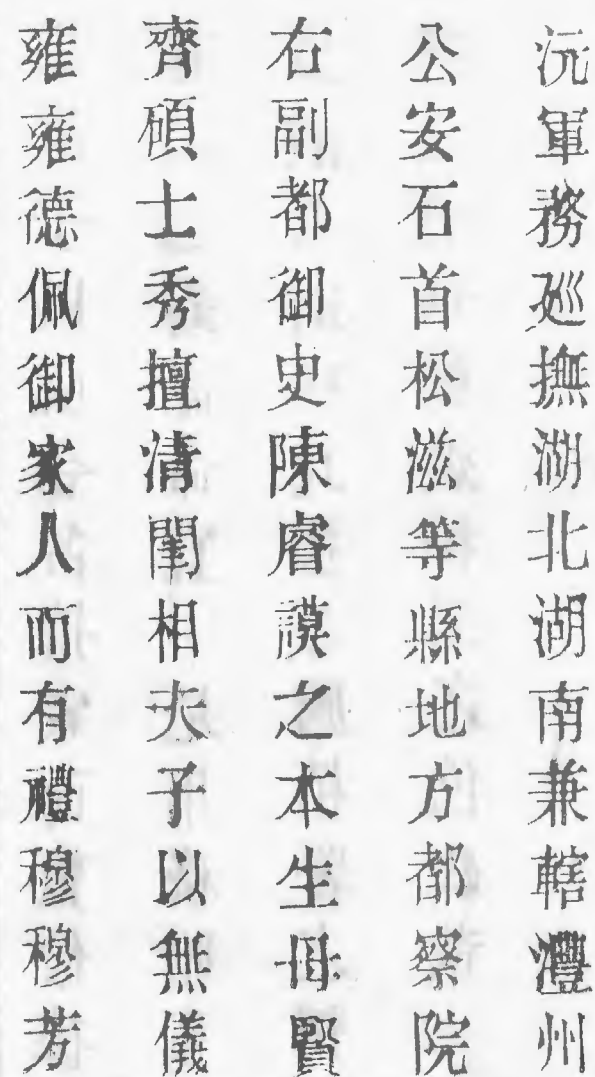 沅軍務廵撫湖北湖南兼轄灃州
公安石首松滋等縣地方都察院
右副都御史陳睿謨之本生母賢
齊碩士秀擅清閨相夫子以無儀
雍雍德佩御家人而有禮穆穆芳